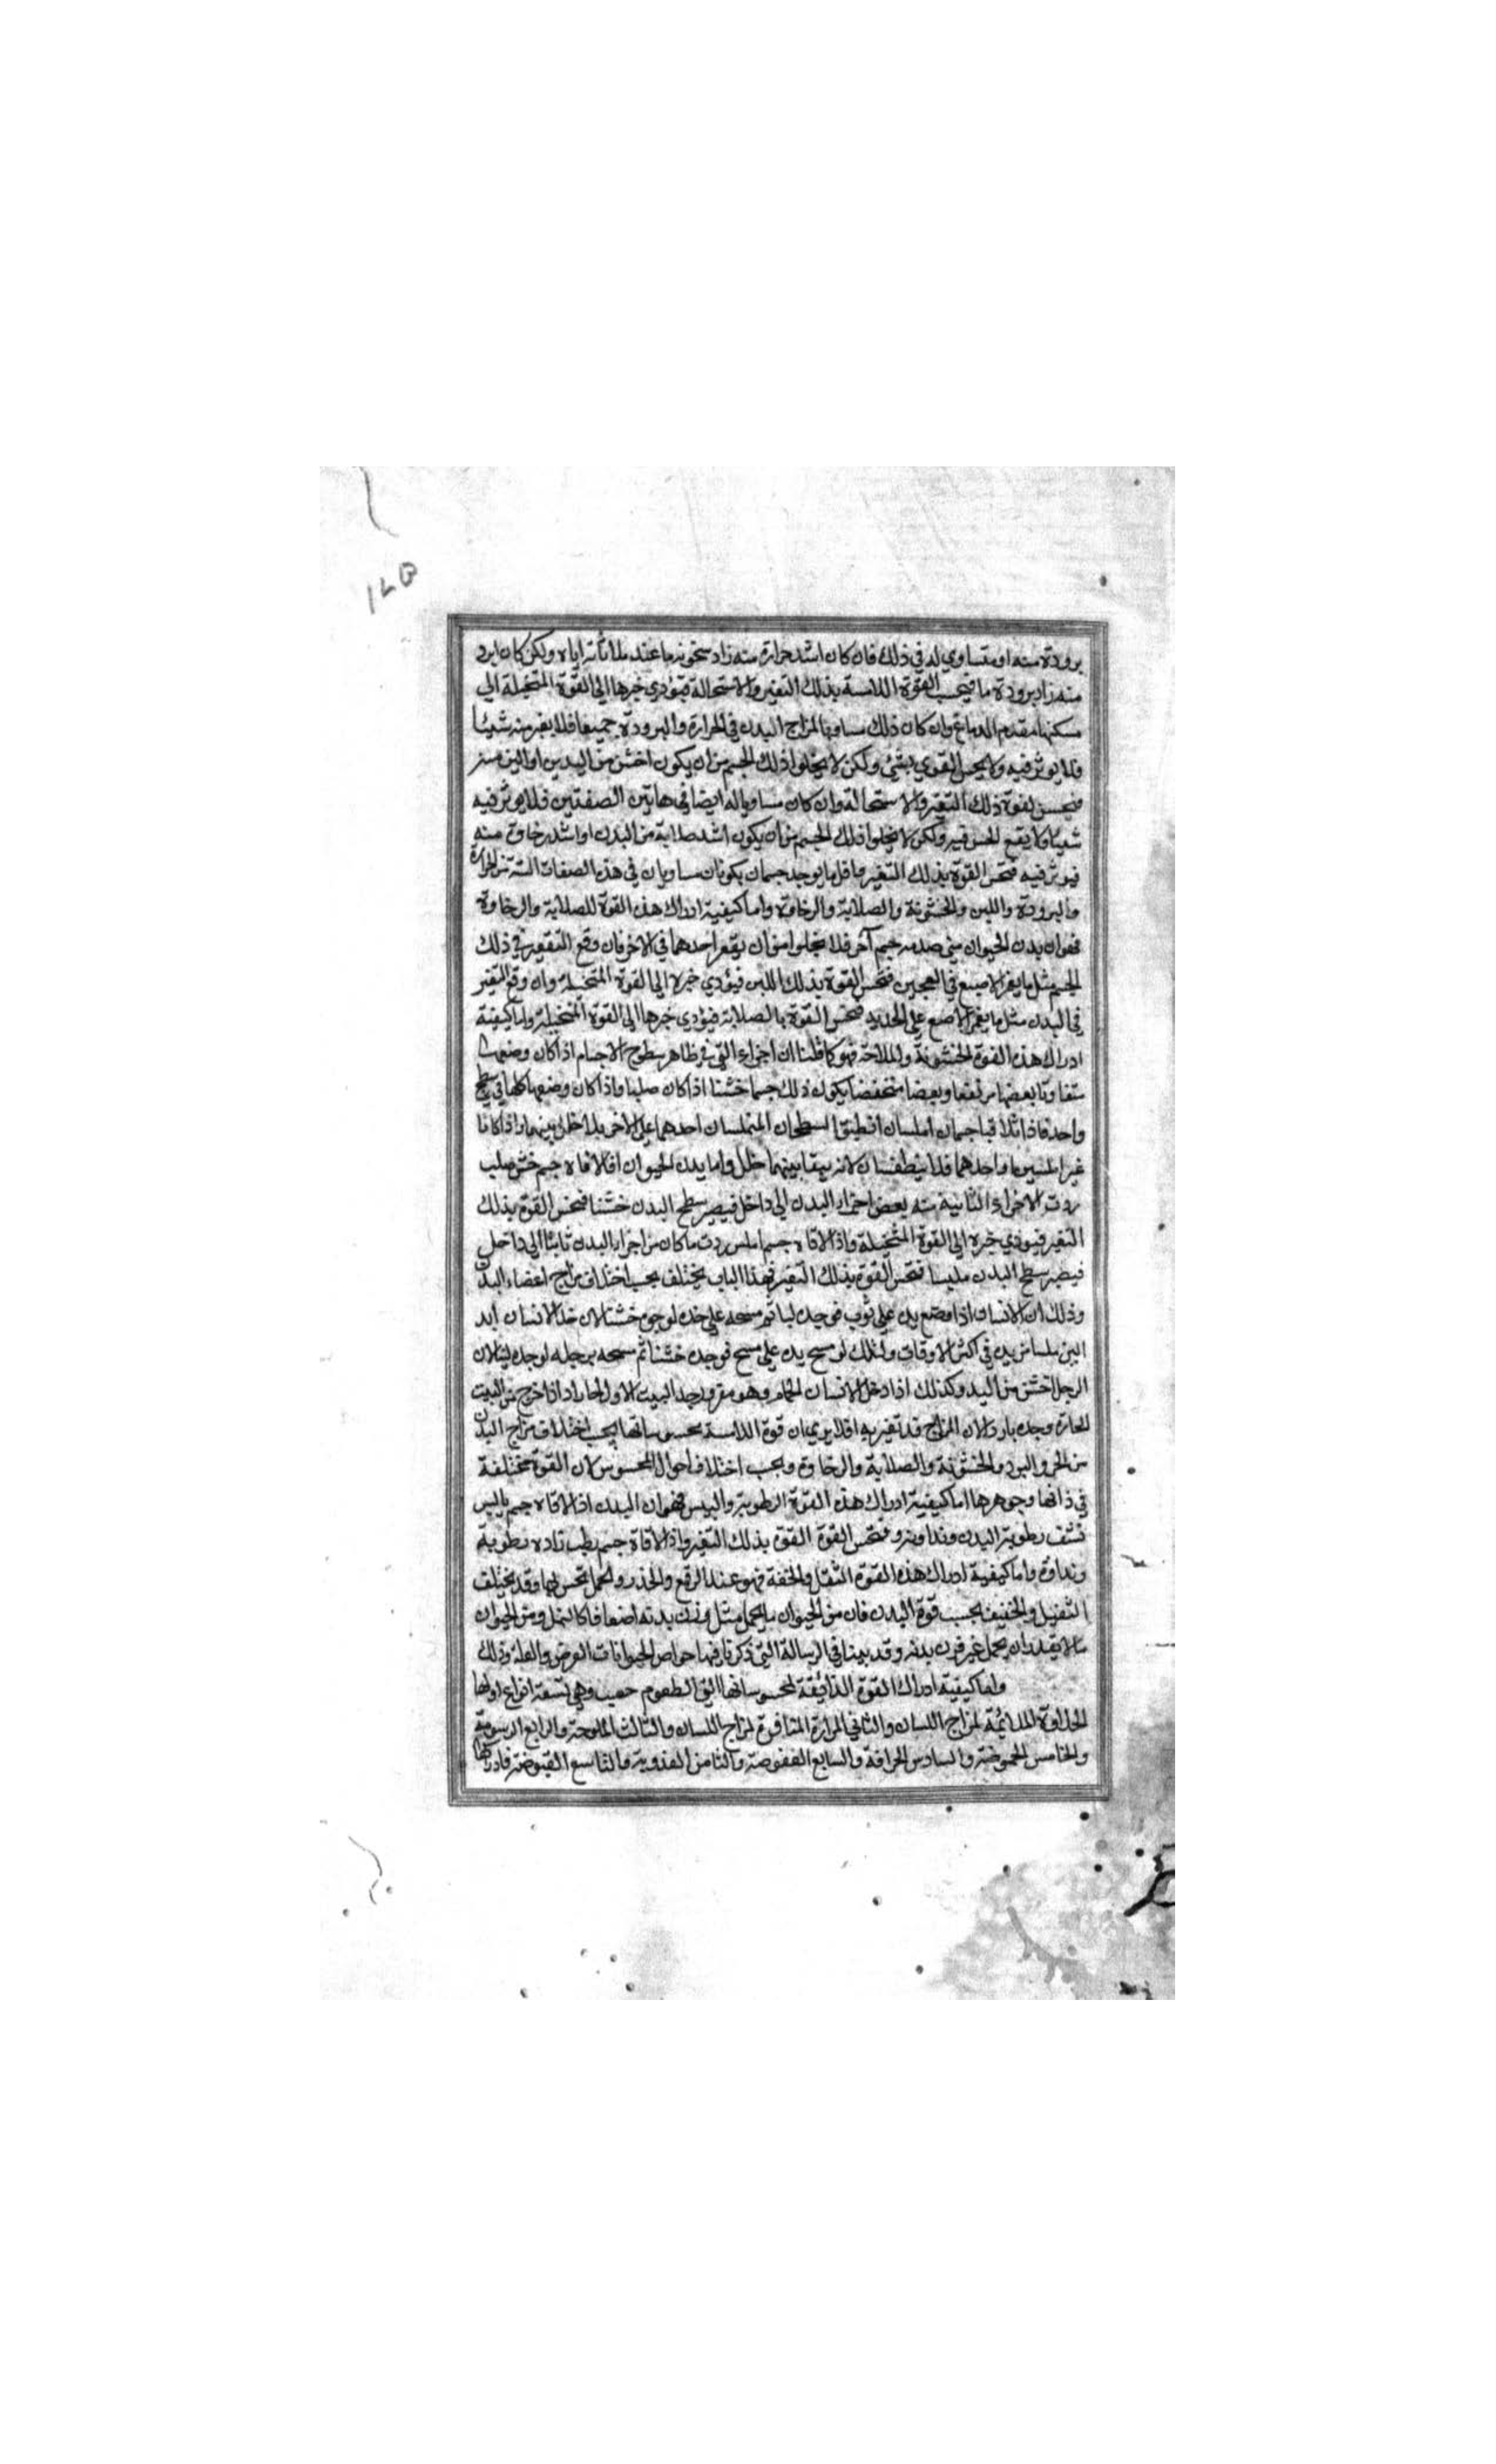 ١٤٥
برودة منه او متساوي له في ذلك فان كان اشد حرارة منه زاد سخونة ما عند ملاقاته اياه ولكن كان ابرد
منه زاد برودة ما فيحس القوة اللامسة بذلك التغير والاستحالة فتؤدي خبرها الى القوة المتخيلة التي
مسكنها مقدم الدماغ وان كان ذلك مساويا لمزاج البدن في الحرارة والبرودة جميعا فلا يغير منه شيئا
فلا يوثر فيه ولا يحس القوي بشئ ولكن لا يخلوا ذلك الجسم من ان يكون اخشن من البدن او الين منه
فتحس القوة ذلك التغير والاستحالة وان كان مساويا له ايضا في هاتين الصفتين فلا يوثر فيه
شيئا ولا يقع الحس فيه ولكن لا يخلوا ذلك الجسم من ان يكون اشد صلابة من البدن او اشد رخاوة منه
فيوثر فيه فتحس القوة بذلك التغير وما قل ما يوجد جسمان يكونان مساويان في هذه الصفات الستة من الحرارة
والبرودة واللين والخشونة والصلابة والرخاوة واما كيفية ادراك هذه القوة للصلابة والرخاوة
فهو ان بدن الحيوان متى صدمه جسم آخر فلا يخلوا من ان يقعر احدهما في الاخر فان وقع التقعير في ذلك
الجسم مثل ما يغمز الاصبع في العجين فتحس القوة بذلك اللين فيؤدي خبره الى القوة المتخيلة وان وقع التقعير
في البدن مثل ما يغمز الاصبع على الحديد فتحس القوة بالصلابة فيؤدي خبرها الى القوة المتخيلة واما كيفية
ادراك هذه القوة الخشونة والملاحة فهو كما قلنا ان اجزاء التي في ظاهر سطوح الاجسام اذا كان وضعها
متفاوتا بعضها مرتفعا وبعضا منخفضا يكون ذلك جسما خشنا اذا كان صلبا واذا كان وضعها كلها في سطح
واحد فاذا تلاقيا جسمان املسان انطبق السطحان المتملسان احدهما على الاخر بلا خلل بينهما واذا كانا
غير املسين او احدهما فلا ينطبقان لانه يبقا بينهما خلل واما بدن الحيوان اذا لاقاه جسم خشن صلب
ردت الاجزاء الناتية منه بعض اجزاء البدن الى داخل فيصير سطح البدن خشنا فتحس القوة بذلك
التغير فيؤدي خبره الى القوة المتخيلة واذا لاقاه جسم املس ردت ما كان من اجزاء البدن ناتئا الى داخل
فيصير سطح البدن مليسا فتحس القوة بذلك التغير فهذا الباب يختلف بحسب اختلاف مزاج اعضاء البدن
وذلك ان الانسان اذا وضع يده على ثوب فوجده لينا ثم مسحه على خده لوجده خشنا لان خد الانسان ابد
الين ملسا من يده في اكثر الاوقات وكذلك لو مسح يده على مسح فوجده خشنا ثم مسحه برجله لوجده لينا لان
الرجل اخشن من اليد وكذلك اذا دخل الانسان الحمام وهو مقرور وجد البيت الاول الحار اذا خرج من البيت
الحارة وجده باردا لان المزاج قد تغير به افلا يرى ان قوة اللامسة محسوساتها بحسب اختلاف مزاج البدن
من الحر والبرد والخشونة والصلابة والرخاوة وبحسب اختلاف احوال المحسوس لان القوة مختلفة
في ذاتها وجوهرها اما كيفية ادراك هذه القوة الرطوبة واليبس فهو ان البدن اذا لاقاه جسم يابس
نشف رطوبة البدن ونداوته وفتحس القوة القوة بذلك التغير واذا لاقاه جسم رطب زاده رطوبة
ونداوة واما كيفية ادراك هذه القوة الثقل والخفة فهو عند الرفع والجذر والحمل تحس بها وقد يختلف
الثقيل والخفيف بحسب قوة البدن فان من الحيوان ما يحمل مثل وزن بدنه اضعافا كالنمل ومن الحيوان
ما لا يقدر ان يحمل غير وزن بدنه وقد بينا في الرسالة التي ذكرنا فيها خواص الحيوانات الغرض والعلة وذلك
واما كيفية ادراك القوة الذائقة لمحسوساتها التي الطعوم حسب وهي تسعة انواع اولها
الحلاوة الملائمة لمزاج اللسان والثاني المرارة المتنافرة لمزاج اللسان والثالث الملوحة والرابع الدسومة
والخامس الحموضة والسادس الحرافة والسابع العفوصة والثامن العذوبة والتاسع القبوضة فادراكها